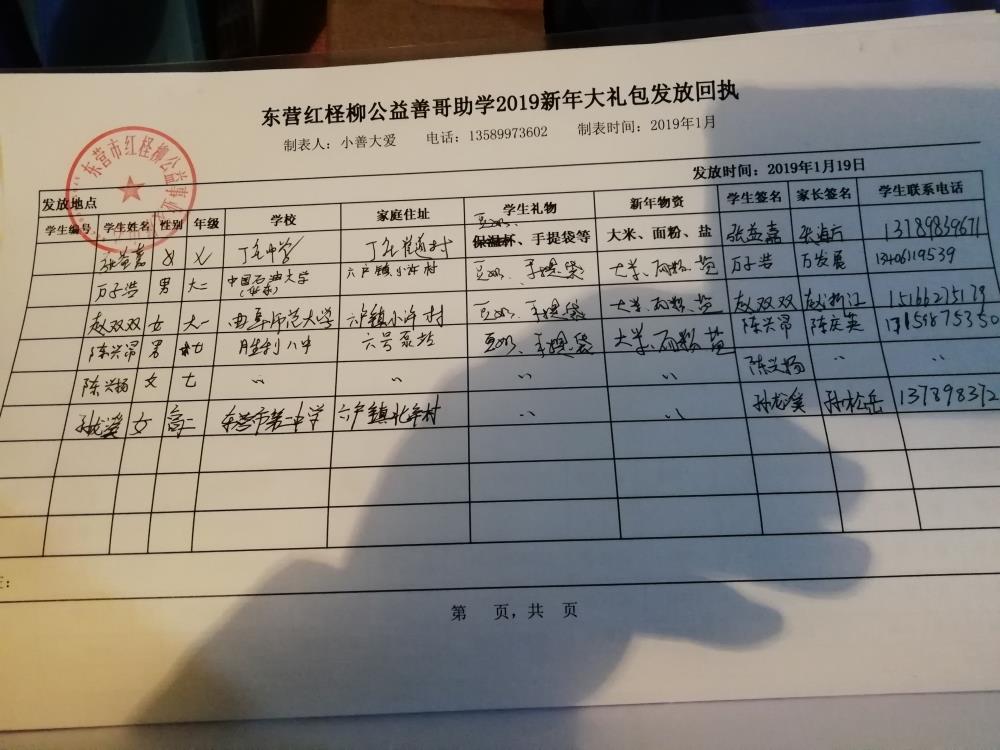 东营红柽柳公益善哥助学2019新年大礼包发放回执
制表人：小善大爱 电话：13589973602 制表时间：2019年1月
东营市红柽柳公益事业
发放地点 发放时间：2019年1月19日
学生编号 学生姓名 性别 年级 学校 家庭住址 学生礼物 新年物资 学生签名 家长签名 学生联系电话
张益嘉 女 丁毛中学 豆奶、保温杯、手提袋等 大米、面粉、盐 张益嘉 13189839671
万子浩 男 大二 中国石油大学（华东） 六户镇小许村 豆奶、手提袋 大米、面粉、盐 万子浩 万发展 13406119539
赵双双 女 大一 曲阜师范大学 六户镇小许村 豆奶、手提袋 大米、面粉、盐 赵双双 赵浙江 15166275179
陈兴昂 男 七 胜利八中 六号泵站 豆奶、手提袋 大米、面粉、盐 陈兴昂 陈庆英
陈兴扬 女 七 〃 〃 〃 〃 陈兴扬 〃 〃
孙龙溪 女 高二 东营市第一中学 六户镇北辛村 〃 〃 孙龙溪 孙松岳 137898372
注：
第 页，共 页